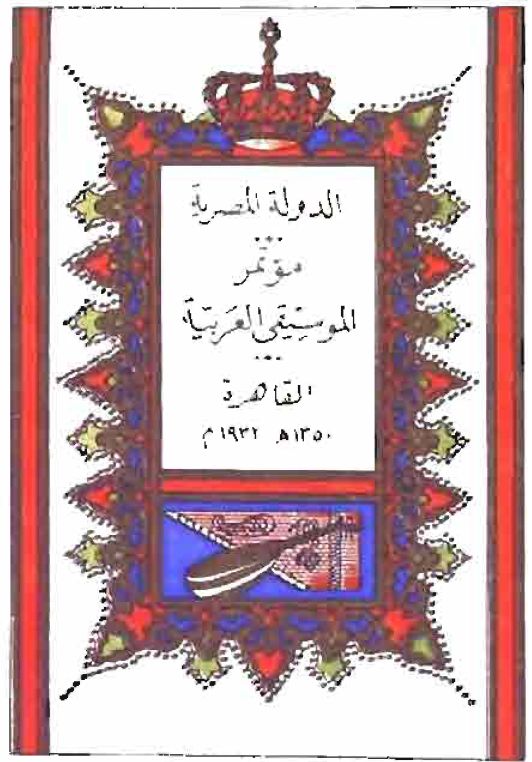 الدولة المصرية
مؤتمر
الموسيقى العربية
القاهرة
١٣٥٠ھ ١٩٣٢م